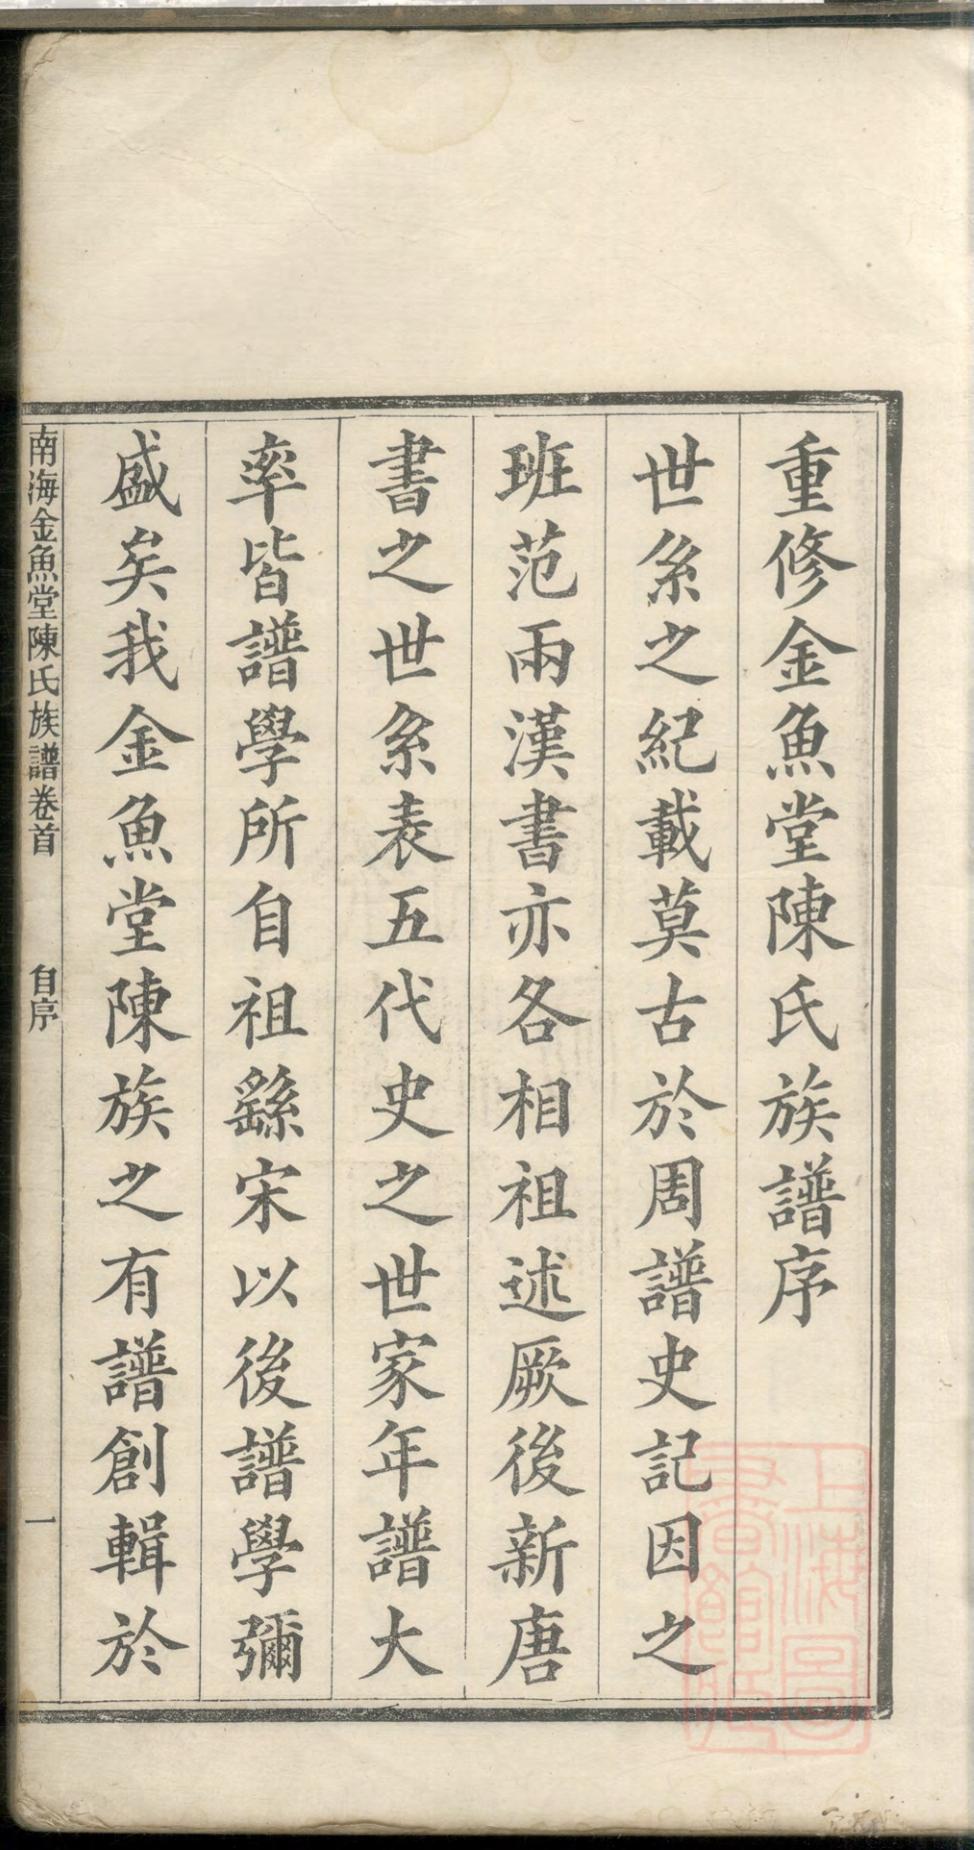 重修金魚堂陳氏族譜序
世系之紀載莫古於周譜史記因之
班范兩漢書亦各相祖述厥後新唐
書之世系表五代史之世家年譜大
率皆譜學所自祖繇宋以後譜學彌
盛矣我金魚堂陳族之有譜創輯於
南海金魚堂陳氏族譜卷首 自序 一
上海圖
書館藏